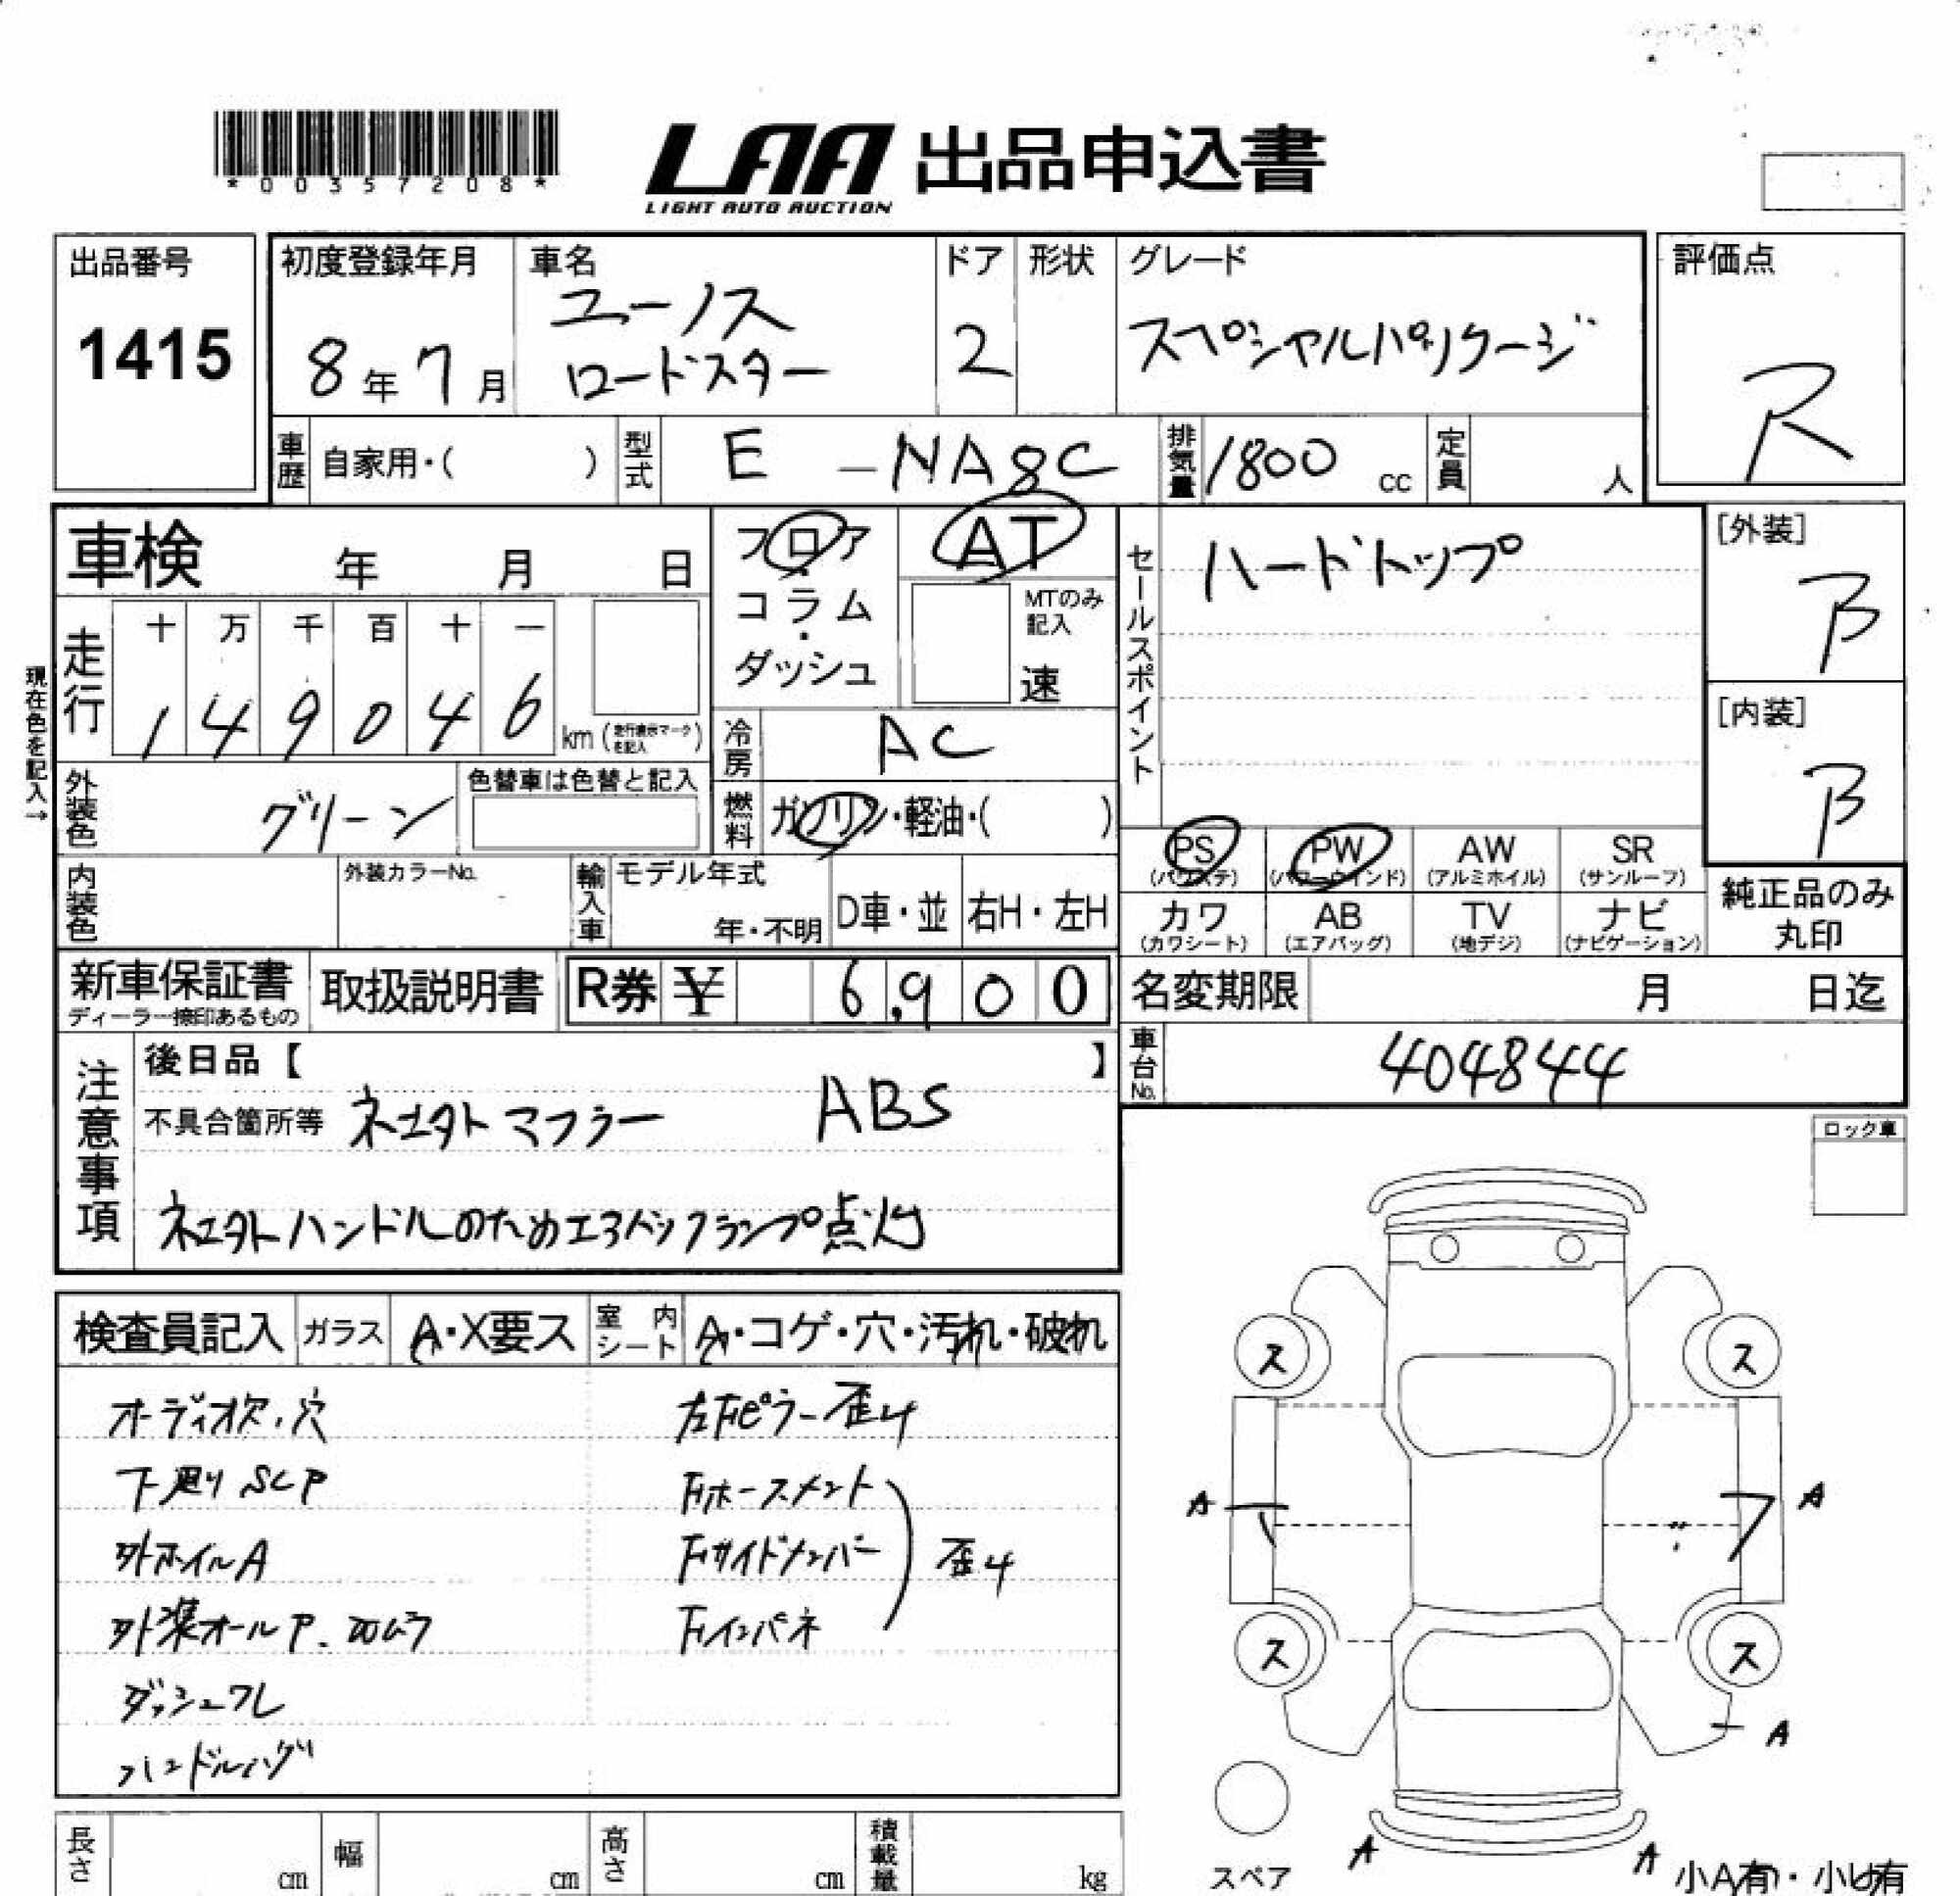 *00357208*
LAA 出品申込書
LIGHT AUTO AUCTION
出品番号
1415
初度登録年月
8年7月
車名
ユーノス
ロードスター
ドア
2
形状
グレード
スペシャルパッケージ
評価点
R
車歴 自家用・( )
型式 E - NA8C
排気量 1800 cc
定員 人
車検 年 月 日
フロア・コラム・ダッシュ
AT
MTのみ記入
速
セールスポイント
ハードトップ
[外装]
B
[内装]
B
現在色を記入→
走行
十 万 千 百 十 一
1 4 9 0 4 6 km (走行表示マークを記入)
冷房 AC
外装色 グリーン
色替車は色替と記入
燃料 ガソリン・軽油・( )
PS (パワステ)
PW (パワーウインド)
AW (アルミホイル)
SR (サンルーフ)
カワ (カワシート)
AB (エアバッグ)
TV (地デジ)
ナビ (ナビゲーション)
純正品のみ
丸印
内装色
外装カラーNo.
輸入車
モデル年式
年・不明
D車・並
右H・左H
新車保証書
ディーラー捺印あるもの
取扱説明書
R券 ¥ 6,900
名変期限 月 日迄
車台No. 404844
注意事項
後日品【 】
不具合箇所等 ネエタト マフラー ABS
ネエタトハンドルのためエアバックランプ点灯
ロック車
検査員記入
ガラス A・X要ス
室内シート A・コゲ・穴・汚れ・破れ
オーディオ欠・穴
下廻りSCP
外ホイルA
外装オールP.
ダッシュワレ
左Fピラー歪み
Fホースメント
Fサイドメンバー
Fインパネ
歪み
ス ス
A A
ス ス
A
A A
スペア
小A有・小U有
長さ cm
幅 cm
高さ cm
積載量 kg